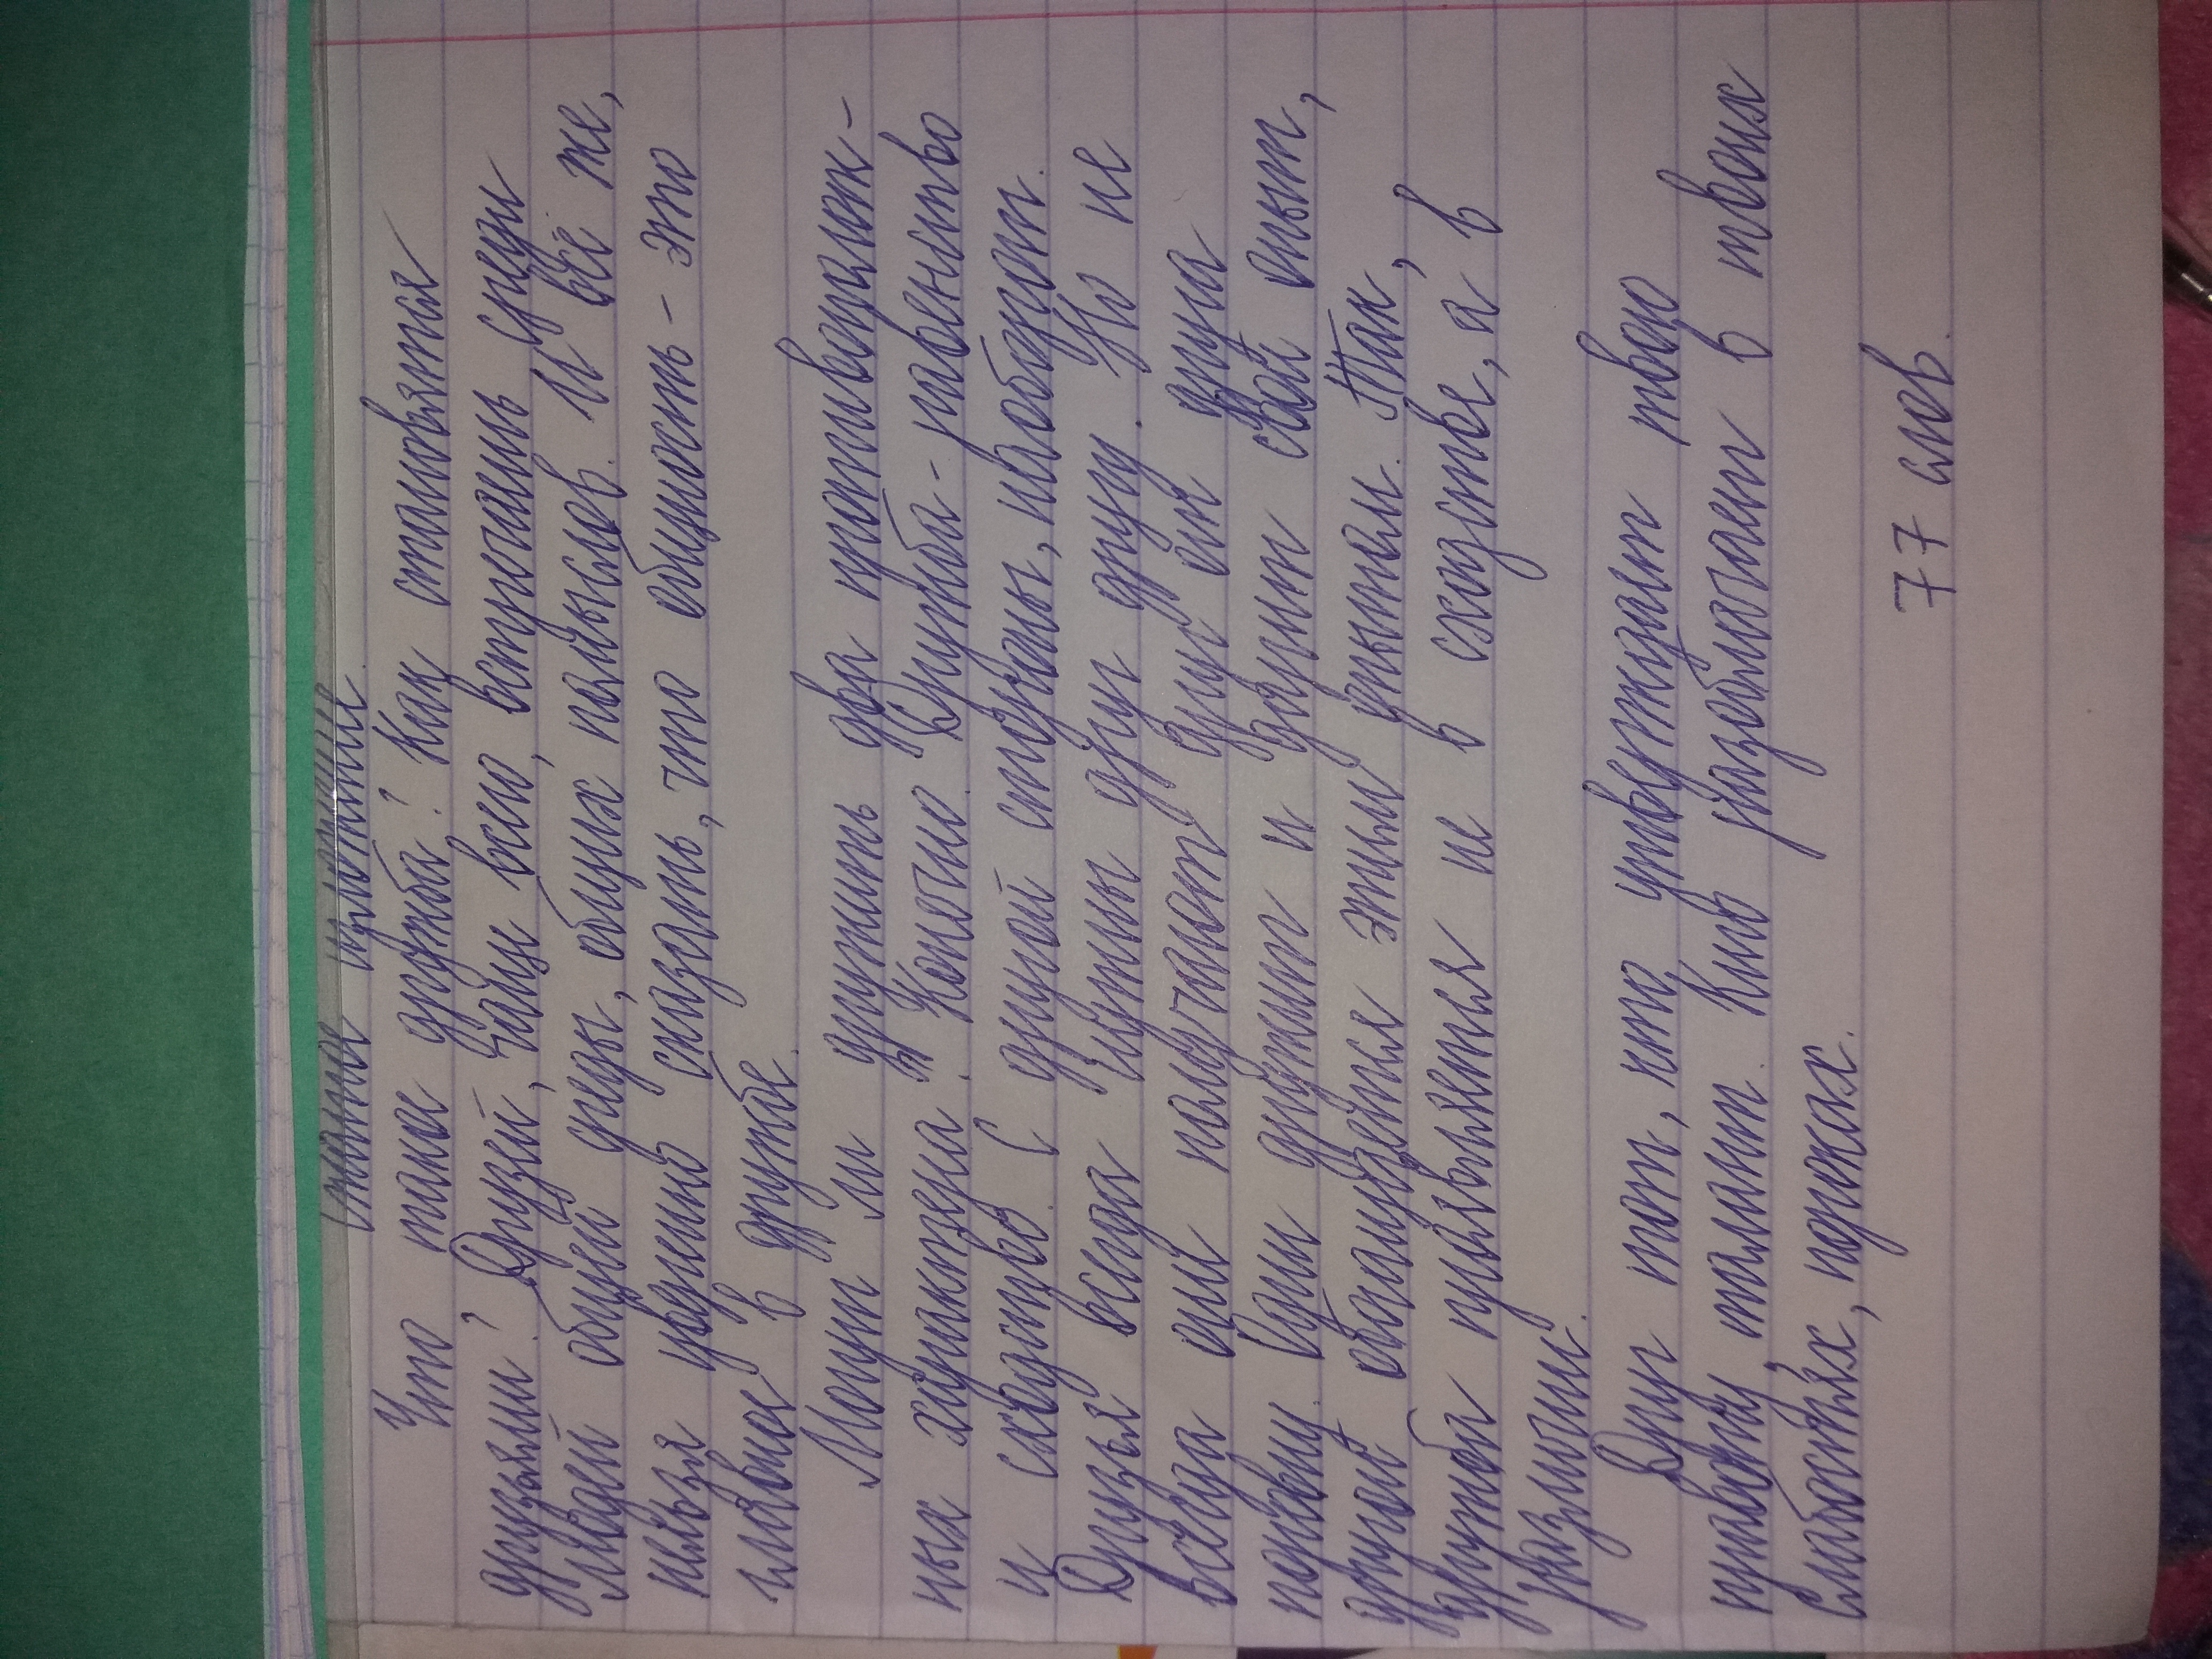 Сжатое изложение.
Что такое дружба? Как становятся
друзьями? Друзей, чаще всего, встретишь среди
людей общей среды, общих помыслов. И всё же,
нельзя уверенно сказать, что общность - это
главное в дружбе.
Могут ли дружить два противополож-
ных характера. Конечно. Дружба - равенство
и сходство. С другой стороны, наоборот.
Друзья всегда нужны друг другу. Но не
всегда они получают друг от друга
поровну. Один дружит и дарит свой опыт,
другой обогащается этим опытом. Так,
дружба проявляется не в сходстве, а в
различии.
Друг тот, кто утверждает твою
правоту, талант. Кто разоблачает в твоих
слабостях, пороках.
77 слов.